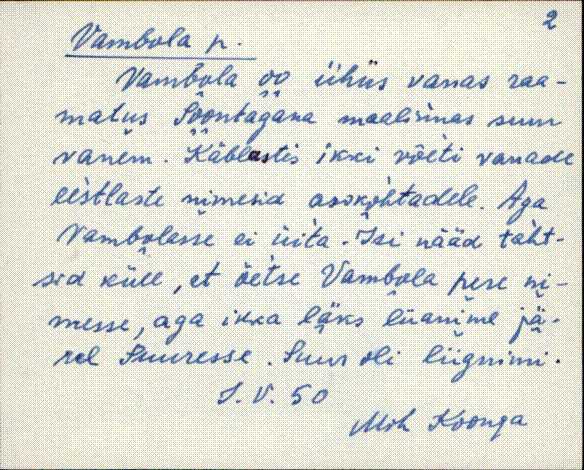 2
Vambola p.
Vambola oo ühüs vanas raa-
matus Soontagana maalinnas suur
vanem. Käblastis ikki võeti vanade
eestlaste nimesid asokohtadele. Aga
Vambolasse ei üita. Isi nääd täht-
sid küll, et öetse Vambola pere ni-
messe, aga ikka läks liianime jä-
rel Suuresse. Suur oli liignimi.
S. V. 50
Mih Koonga